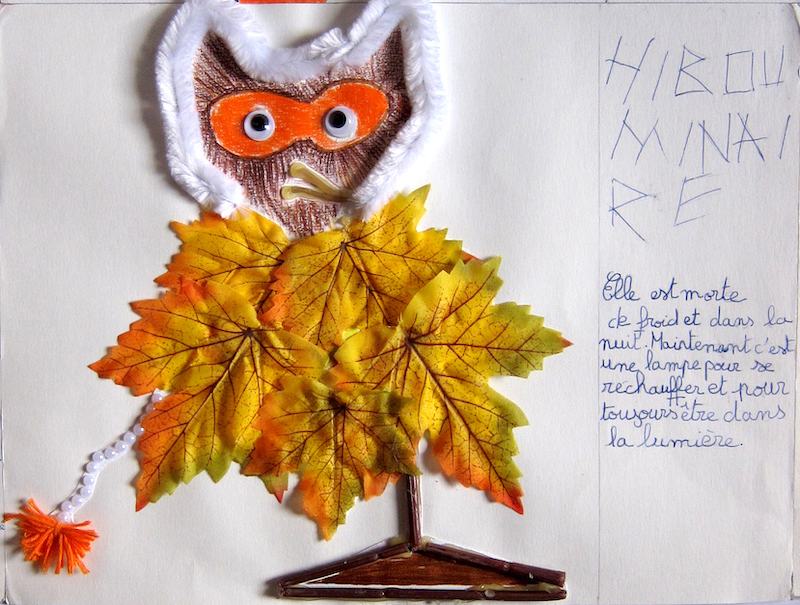 HIBOU
MINAI
RE
Elle est morte
de froid et dans la
nuit. Maintenant c'est
une lampe pour se
réchauffer et pour
toujours être dans
la lumière.